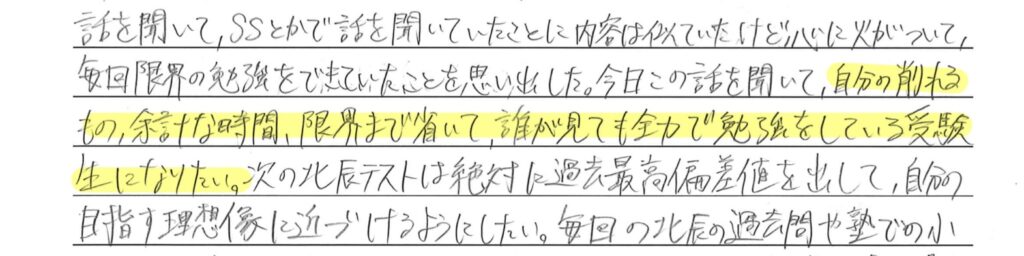 話を聞いて,SSとかで話を聞いていたことに内容は似ていたけど心に火がついて,
毎回限界の勉強をできていたことを思い出した。今日この話を聞いて,自分の削れる
もの,余計な時間、限界まで省いて,誰が見ても全力で勉強をしている受験
生になりたい。次の北辰テストは絶対に過去最高偏差値を出して,自分の
目指す理想像に近づけるようにしたい。毎回の北辰の過去問や塾での小